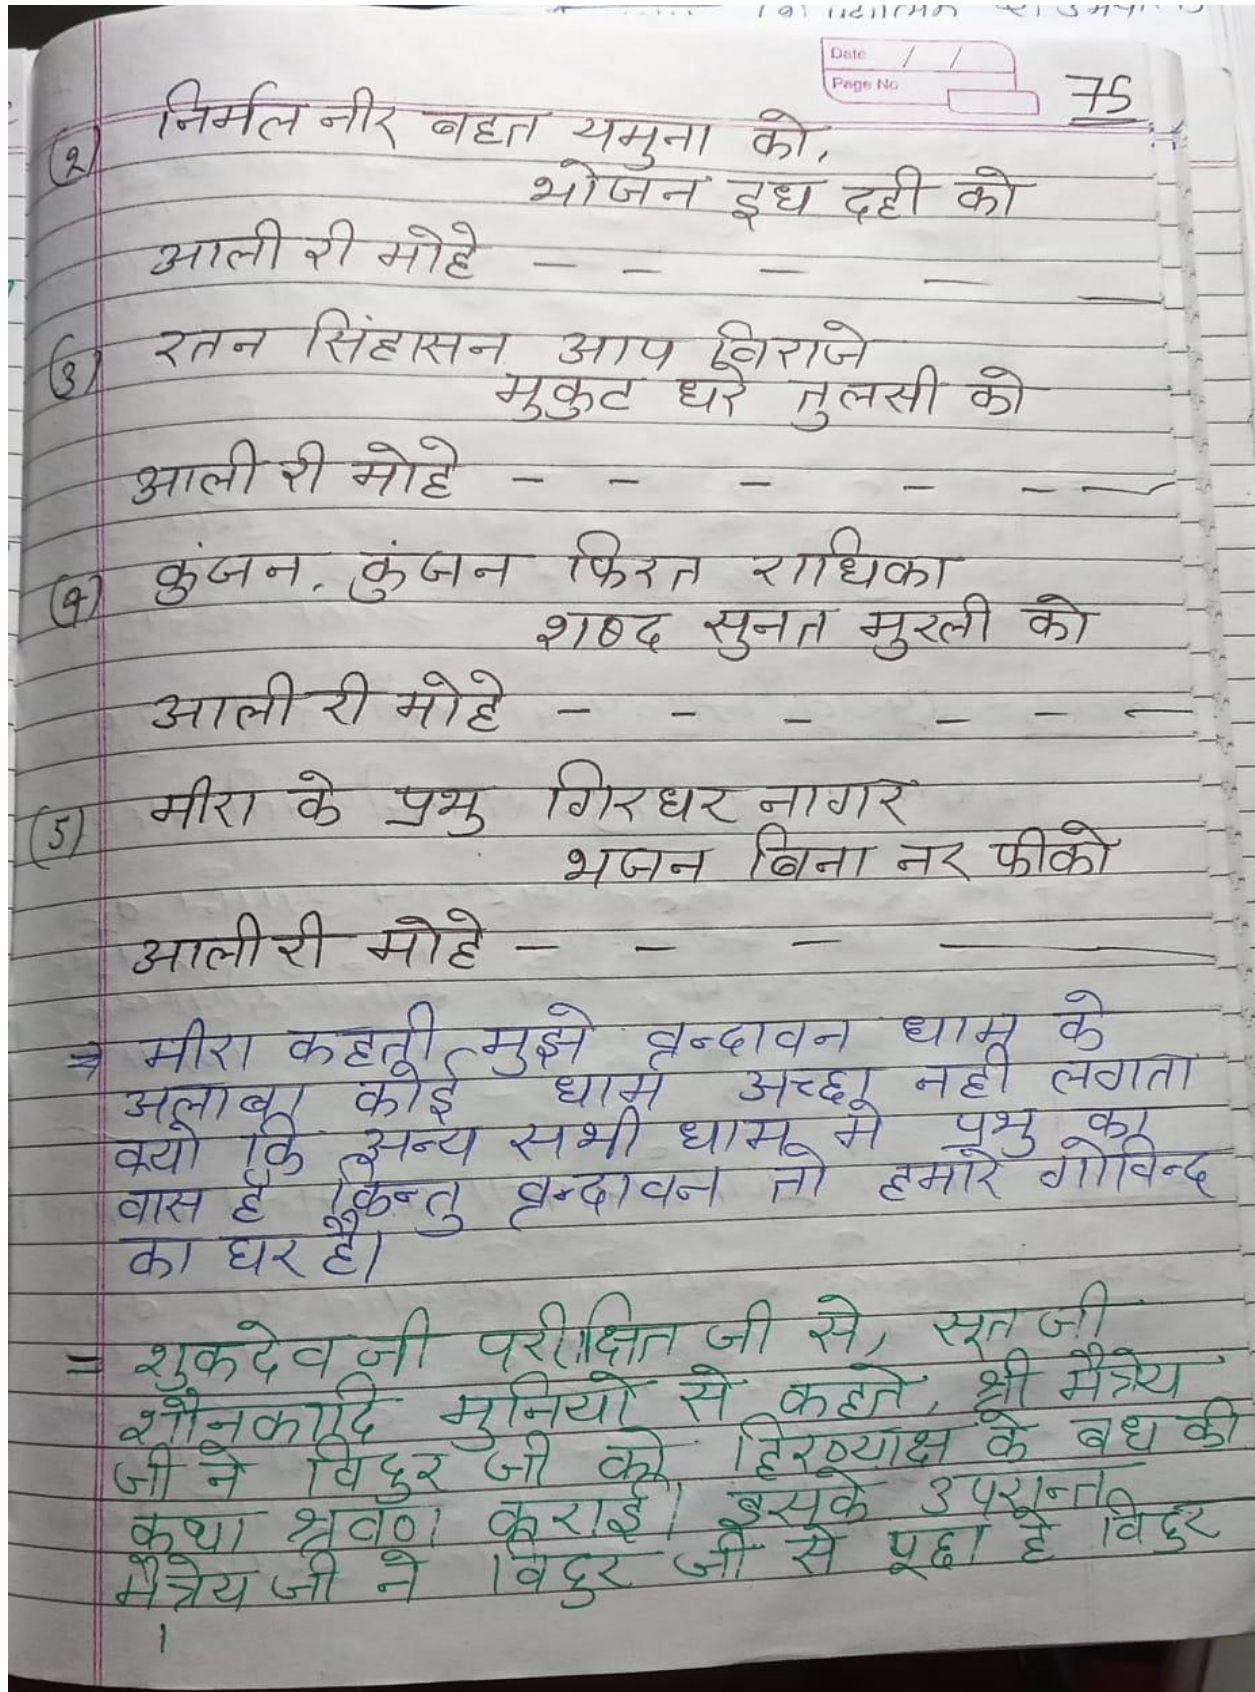 Date / /
Page No
75
(2) निर्मल नीर बहत यमुना को,
भोजन दूध दही को
आली री मोहे - - - - -
(3) रतन सिंहासन आप विराजे
मुकुट धरे तुलसी को
आली री मोहे - - - - - -
(4) कुंजन, कुंजन फिरत राधिका
शब्द सुनत मुरली को
आली री मोहे - - - - - -
(5) मीरा के प्रभु गिरधर नागर
भजन बिना नर फीको
आली री मोहे - - - -
⇒ मीरा कहती, मुझे व्रन्दावन धाम के
अलाबा कोई धाम अच्छा नही लगता
क्यो कि अन्य सभी धाम मे प्रभु का
वास है किन्तु व्रन्दावन तो हमारे गोविन्द
का घर है।
= शुकदेव जी परीक्षित जी से, सूत जी
शौनकादि मुनियो से कहते, श्री मैत्रेय
जी ने विदुर जी को हिरण्याक्ष के बध की
कथा श्रवण कराई। इसके उपरान्त
मैत्रेय जी ने विदुर जी से पूछा हे विदुर
।